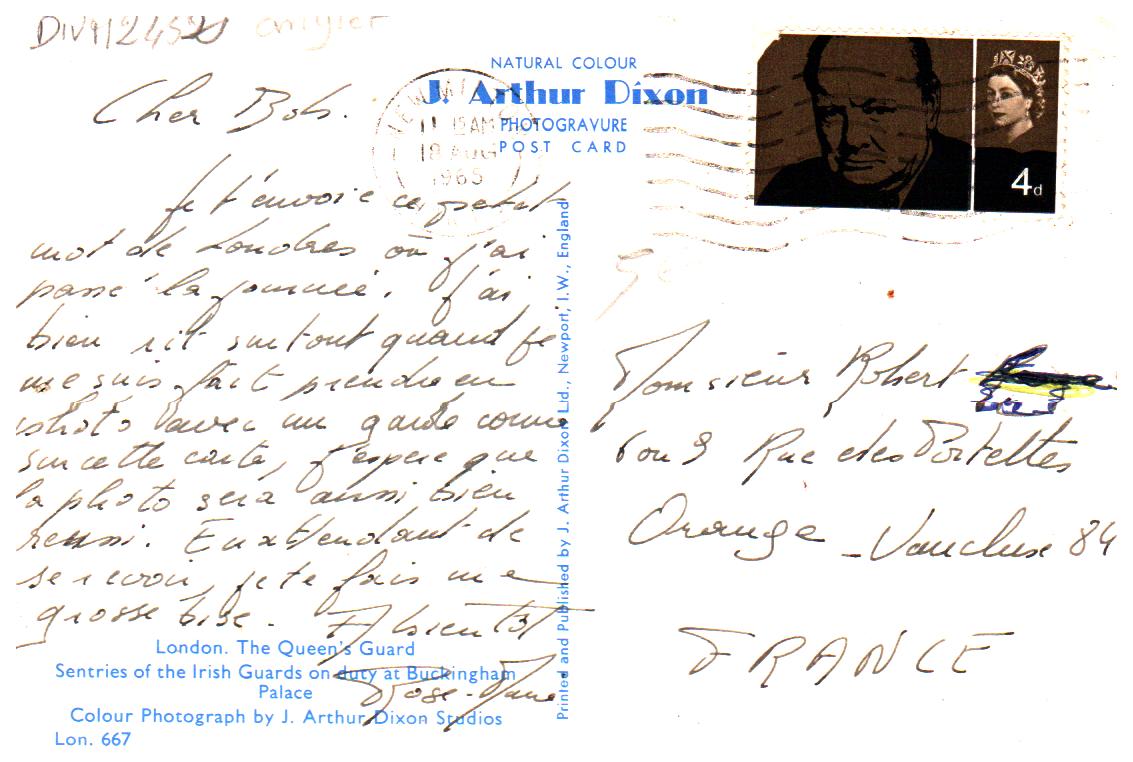 Cher Bob.
NATURAL COLOUR
J. Arthur Dixon
PHOTOGRAVURE
POST CARD
12 AM
18 AUG
1965
4d
Je t'envoie ce petit
mot de Londres où j'ai
passé la journée. J'ai
bien rit surtout quand je
me suis fait prendre en
photo avec un garde comme
sur cette carte, j'espère que
la photo sera aussi bien
reussi. En attendant de
se revoir, je te fais une
grosse bise. A bientôt
Rose-Marie
London. The Queen's Guard
Sentries of the Irish Guards on duty at Buckingham
Palace
Colour Photograph by J. Arthur Dixon Studios
Lon. 667
Printed and Published by J. Arthur Dixon Ltd., Newport, I.W., England
Monsieur Robert
6 ou 9 Rue des Portettes
Orange - Vaucluse 84
FRANCE